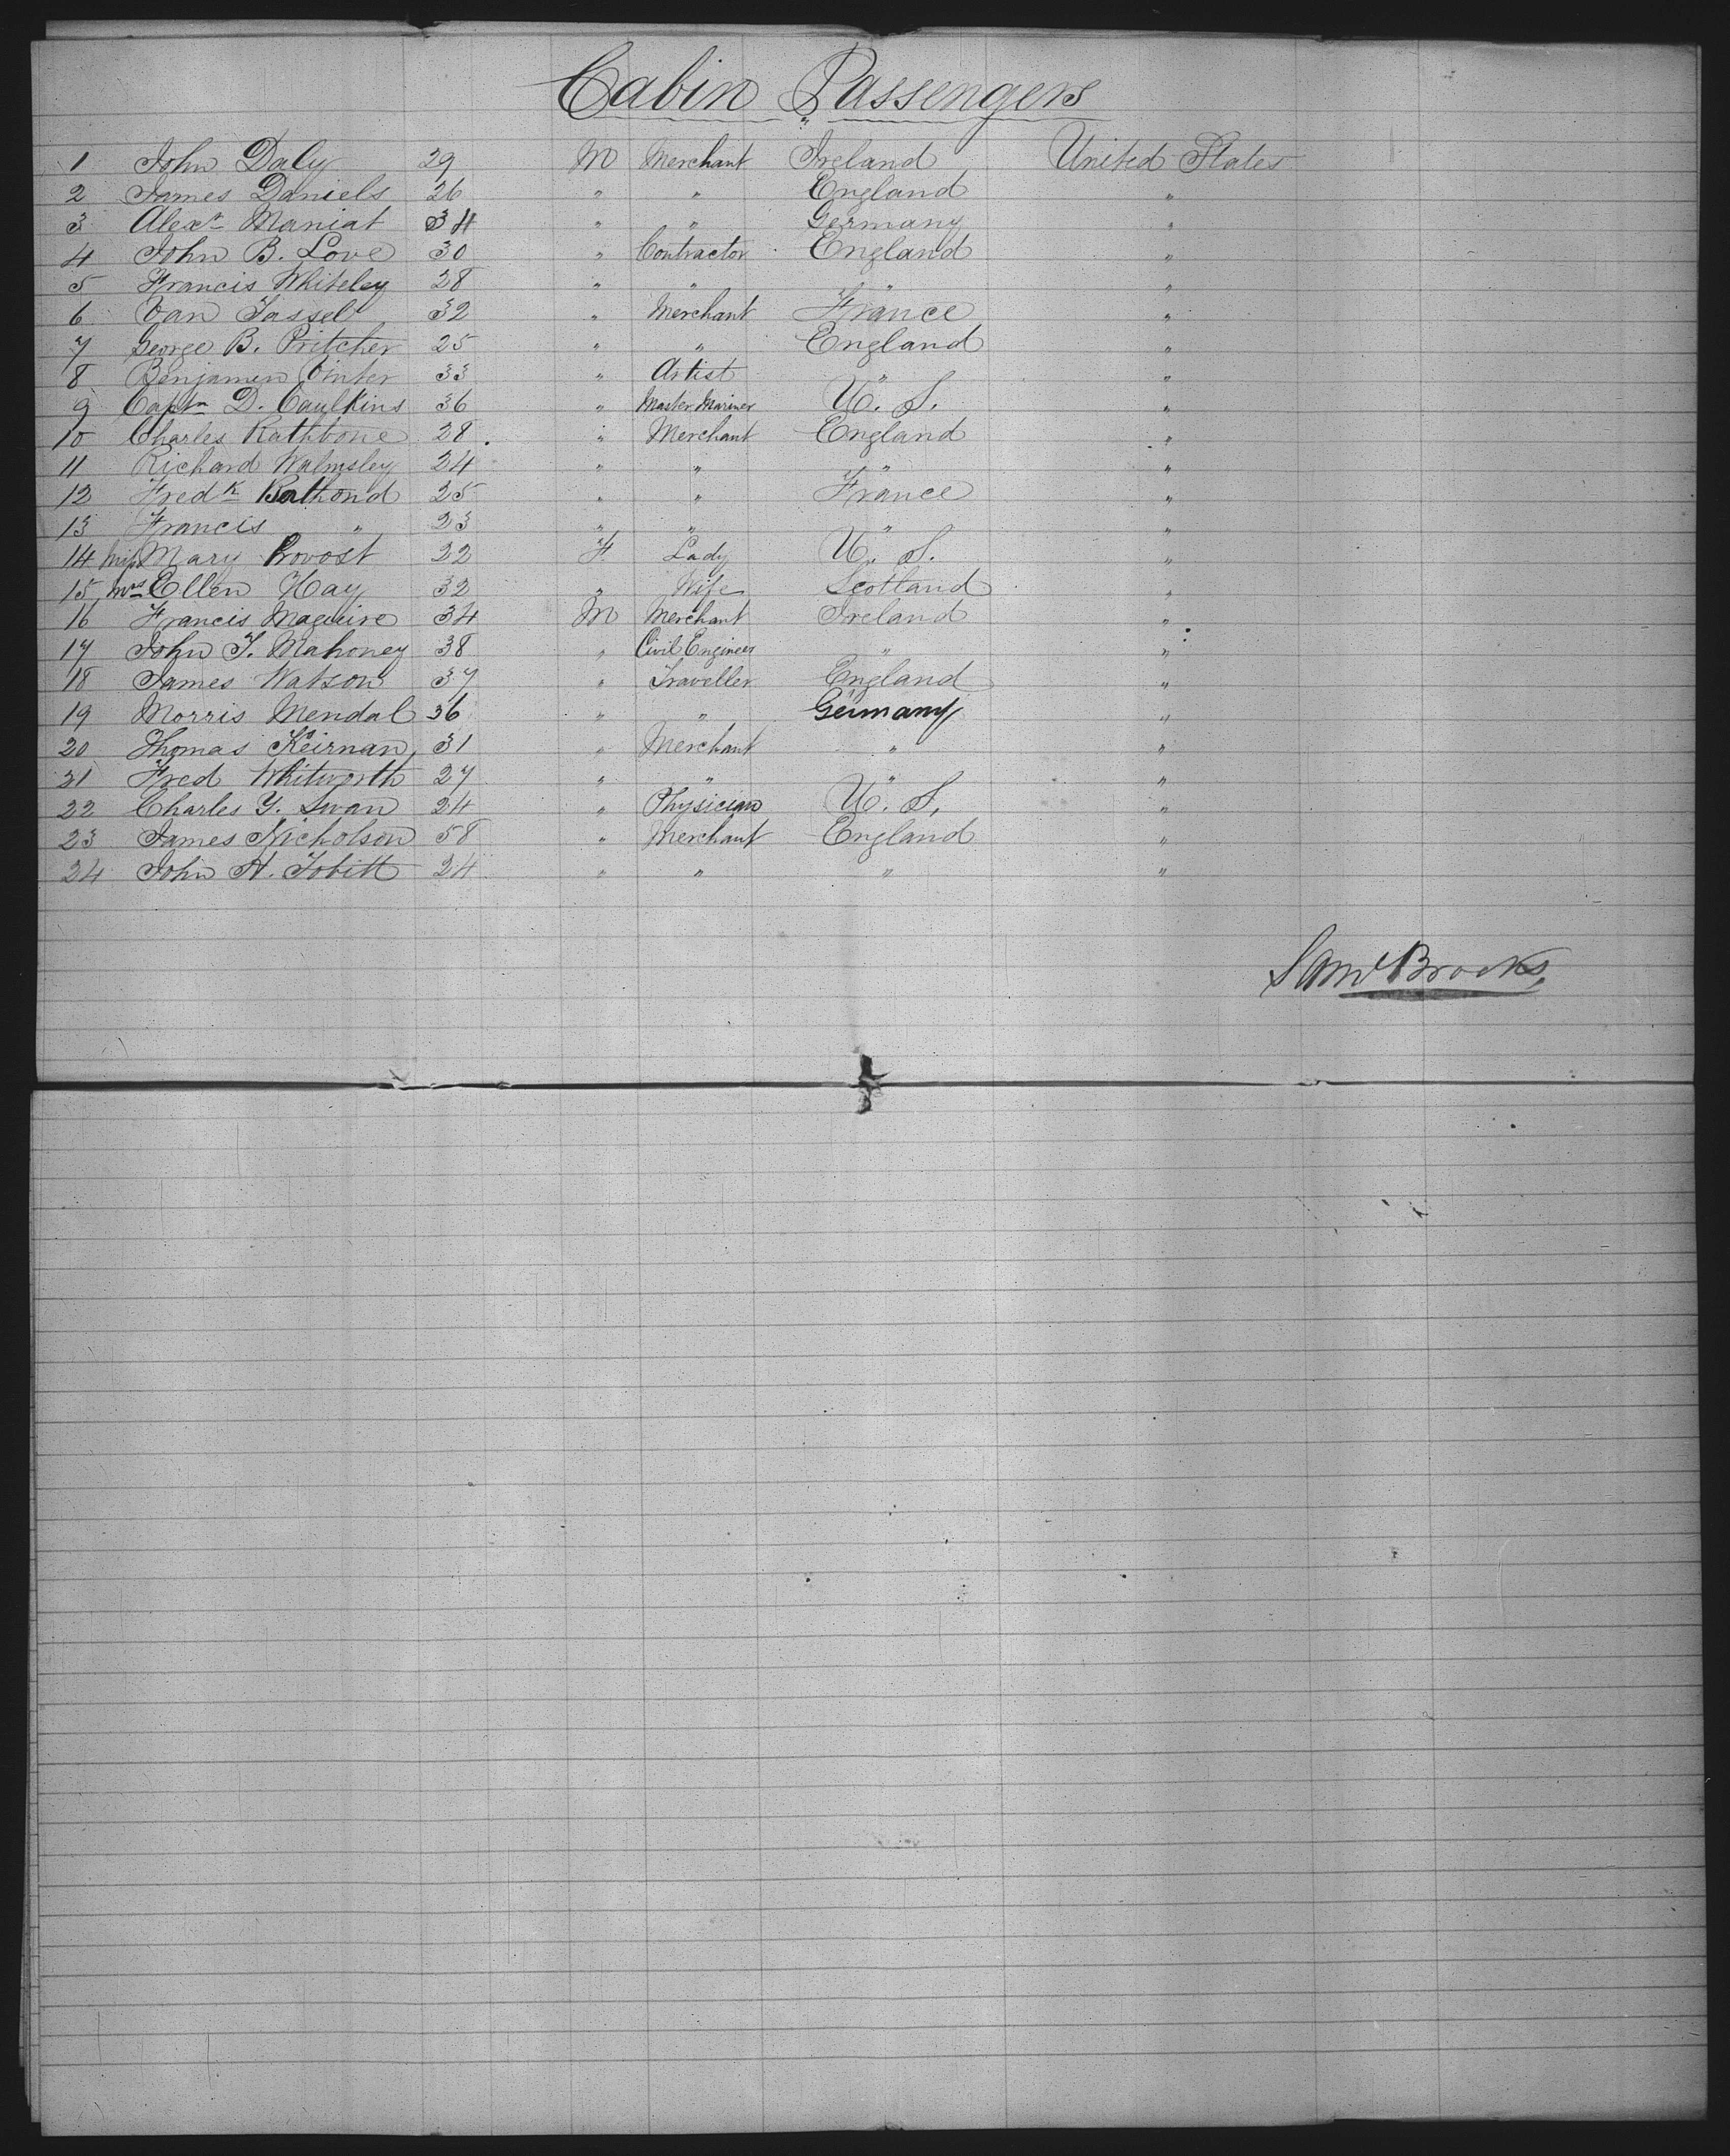 Cabin Passengers
1 John Daly 29 M Merchant Ireland United States
2 James Daniels 26 " " England "
3 Alexr Maniat 34 " " Germany "
4 John B. Love 30 " Contractor England "
5 Francis Whiteley 28 " " " "
6 Van Tassel 32 " Merchant France "
7 George B. Pritcher 25 " " England "
8 Benjamin Vinter 33 " Artist " "
9 Captn D. Caulkins 36 " Master Mariner U. S. "
10 Charles Rathbone 28 " Merchant England "
11 Richard Walmsley 24 " " " "
12 Fredk Bathond 25 " " France "
13 Francis " 23 " " " "
14 Miss Mary Provost 22 F Lady U. S. "
15 Mrs Ellen Hay 32 " Wife Scotland "
16 Francis Maguire 34 M Merchant Ireland "
17 John T. Mahoney 38 " Civil Engineer " "
18 James Watson 37 " Traveller England "
19 Morris Mendal 36 " " Germany "
20 Thomas Keirnan, 31 " Merchant " "
21 Fred Whitworth 27 " " " "
22 Charles Y. Swan 24 " Physician U. S. "
23 James Nicholson 58 " Merchant England "
24 John H. Tobitt 24 " " " "
Saml Brooks